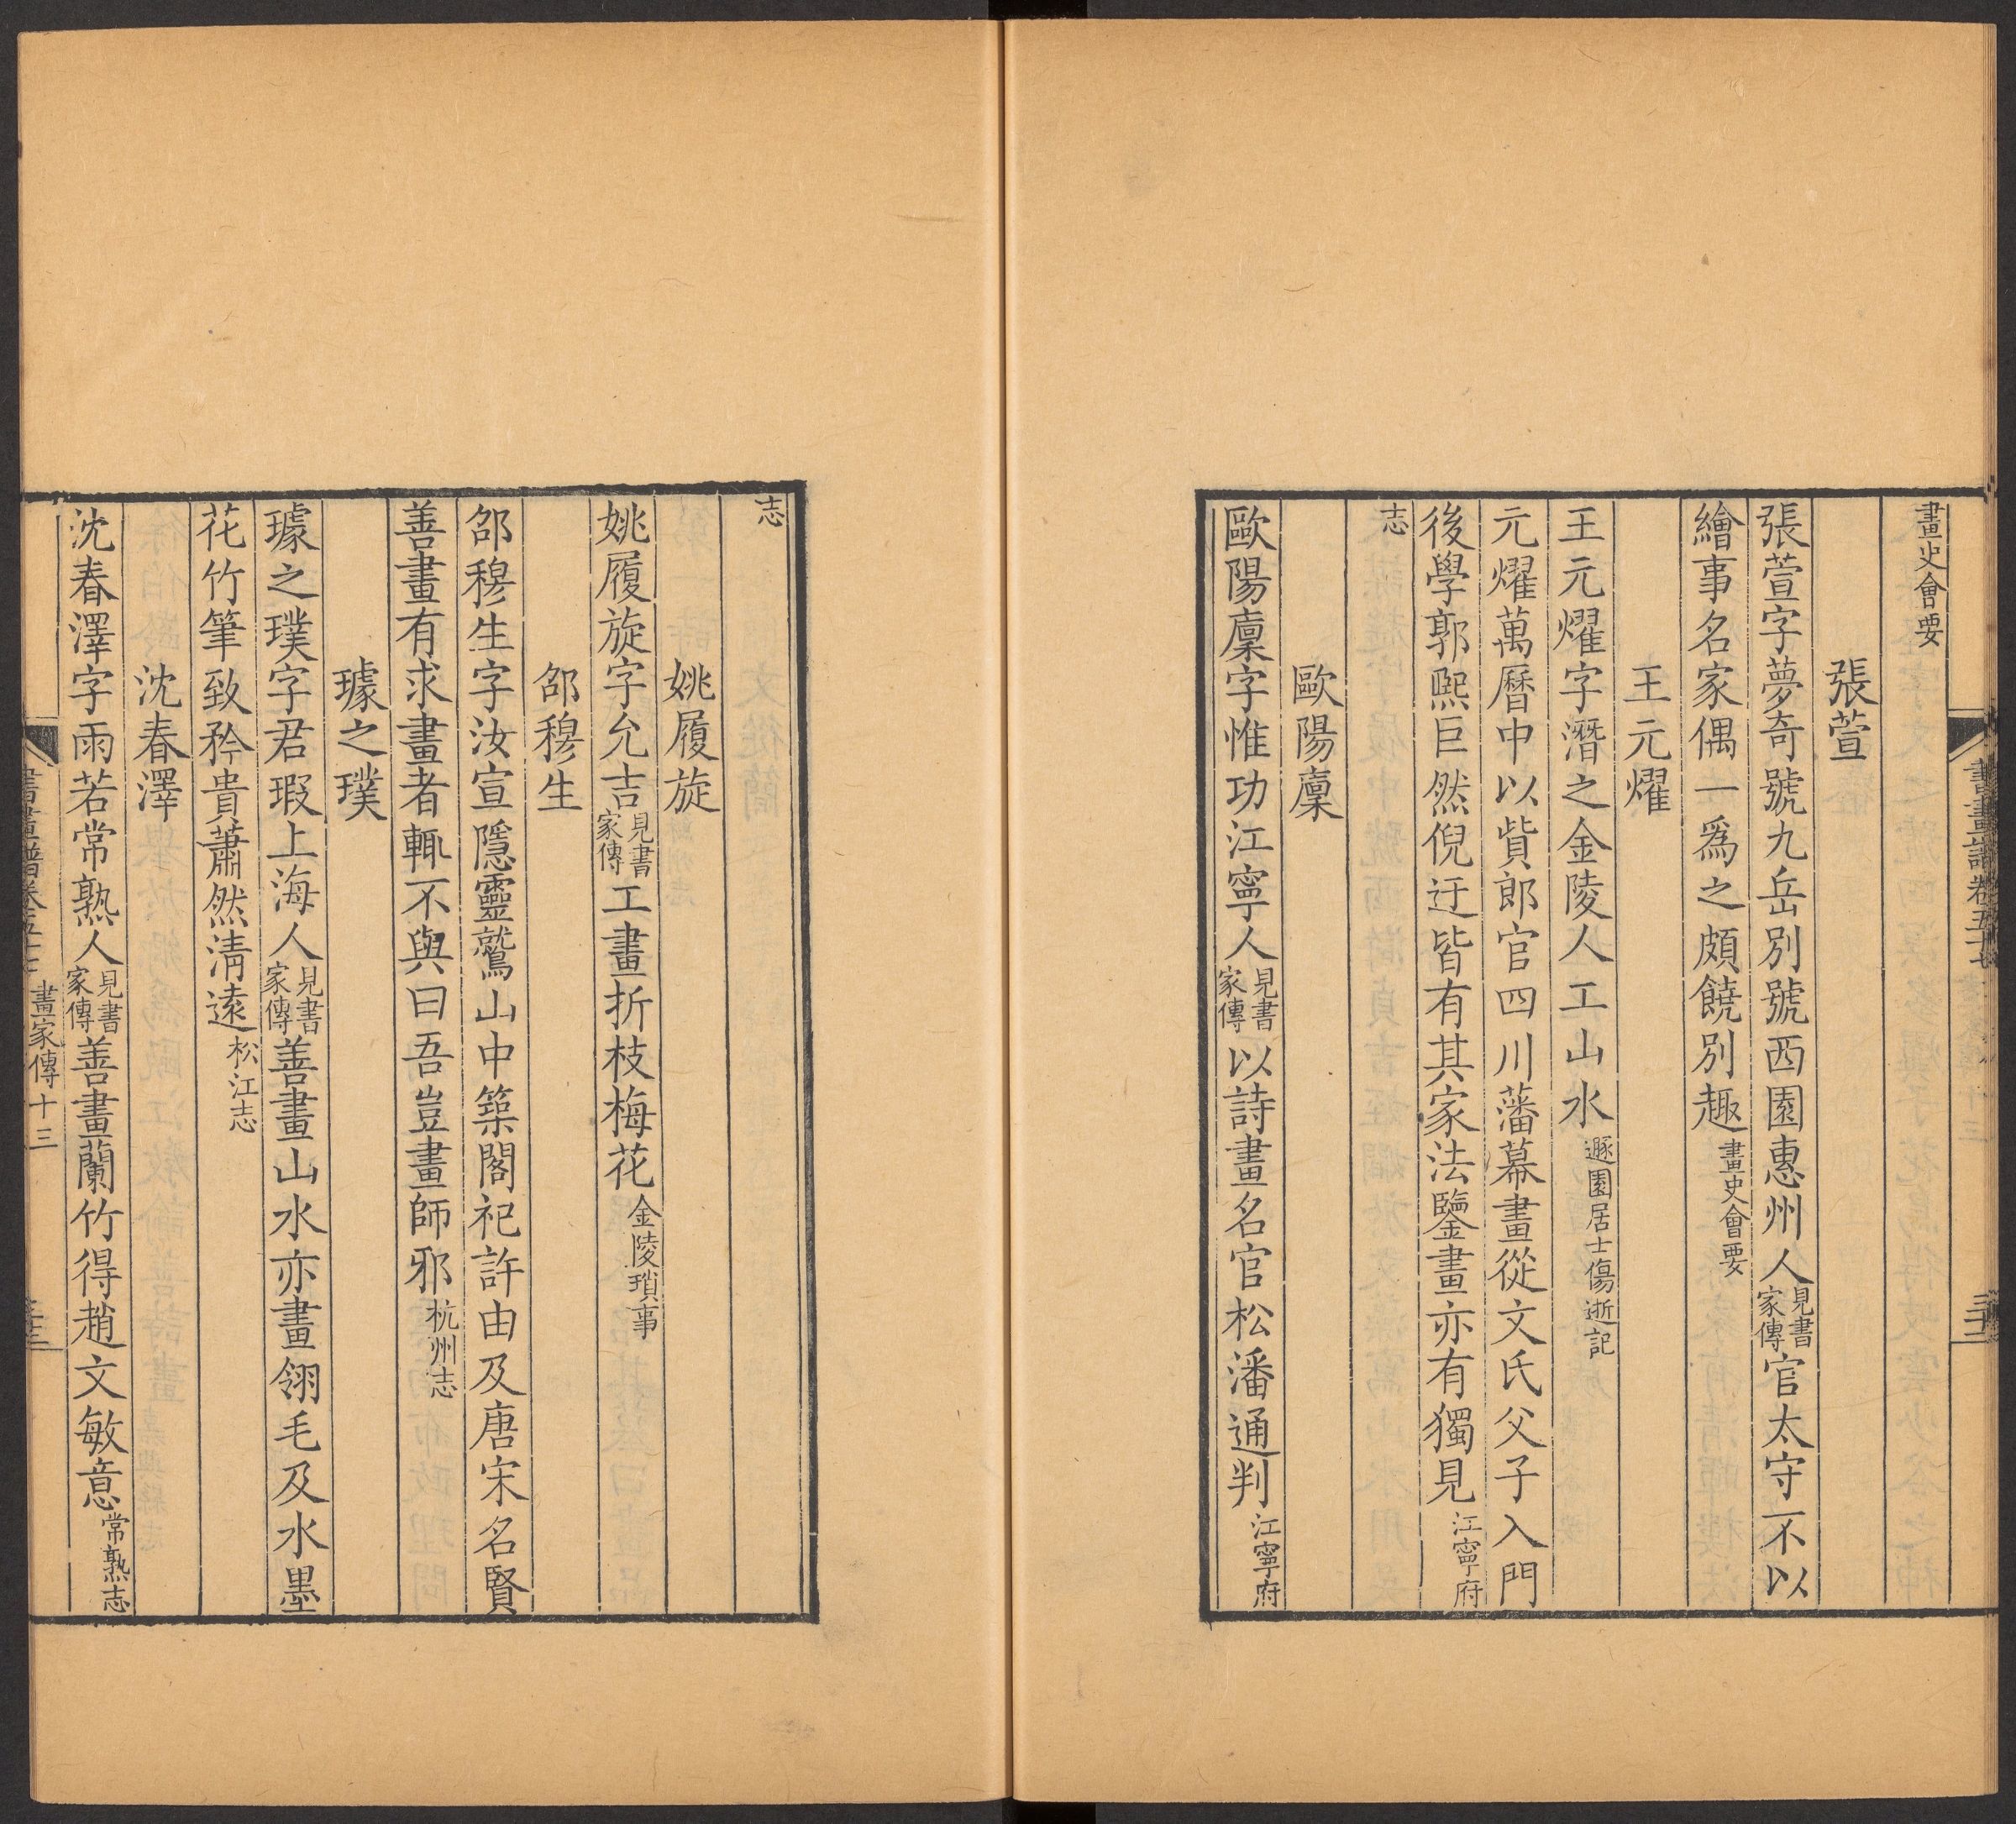 畫史會要
張萱
張萱字夢奇號九岳別號西園惠州人見書家傳官太守不以
繪事名家偶一爲之頗饒別趣畫史會要
王元燿
王元燿字潛之金陵人工山水遯園居士傷逝記
元燿萬曆中以貲郎官四川藩幕畫從文氏父子入門
後學郭熙巨然倪迂皆有其家法鑒畫亦有獨見江寧府
志
歐陽廩
歐陽廩字惟功江寧人見書家傳以詩畫名官松潘通判江寧府
志
姚履旋
姚履旋字允吉見書家傳工畫折枝梅花金陵瑣事
邵穆生
邵穆生字汝宣隱靈鷲山中築閣祀許由及唐宋名賢
善畫有求畫者輒不與曰吾豈畫師邪杭州志
璩之璞
璩之璞字君瑕上海人見書家傳善畫山水亦畫翎毛及水墨
花竹筆致矜貴蕭然清遠松江志
沈春澤
沈春澤字雨若常熟人見書家傳善畫蘭竹得趙文敏意常熟志
畫家傳十三